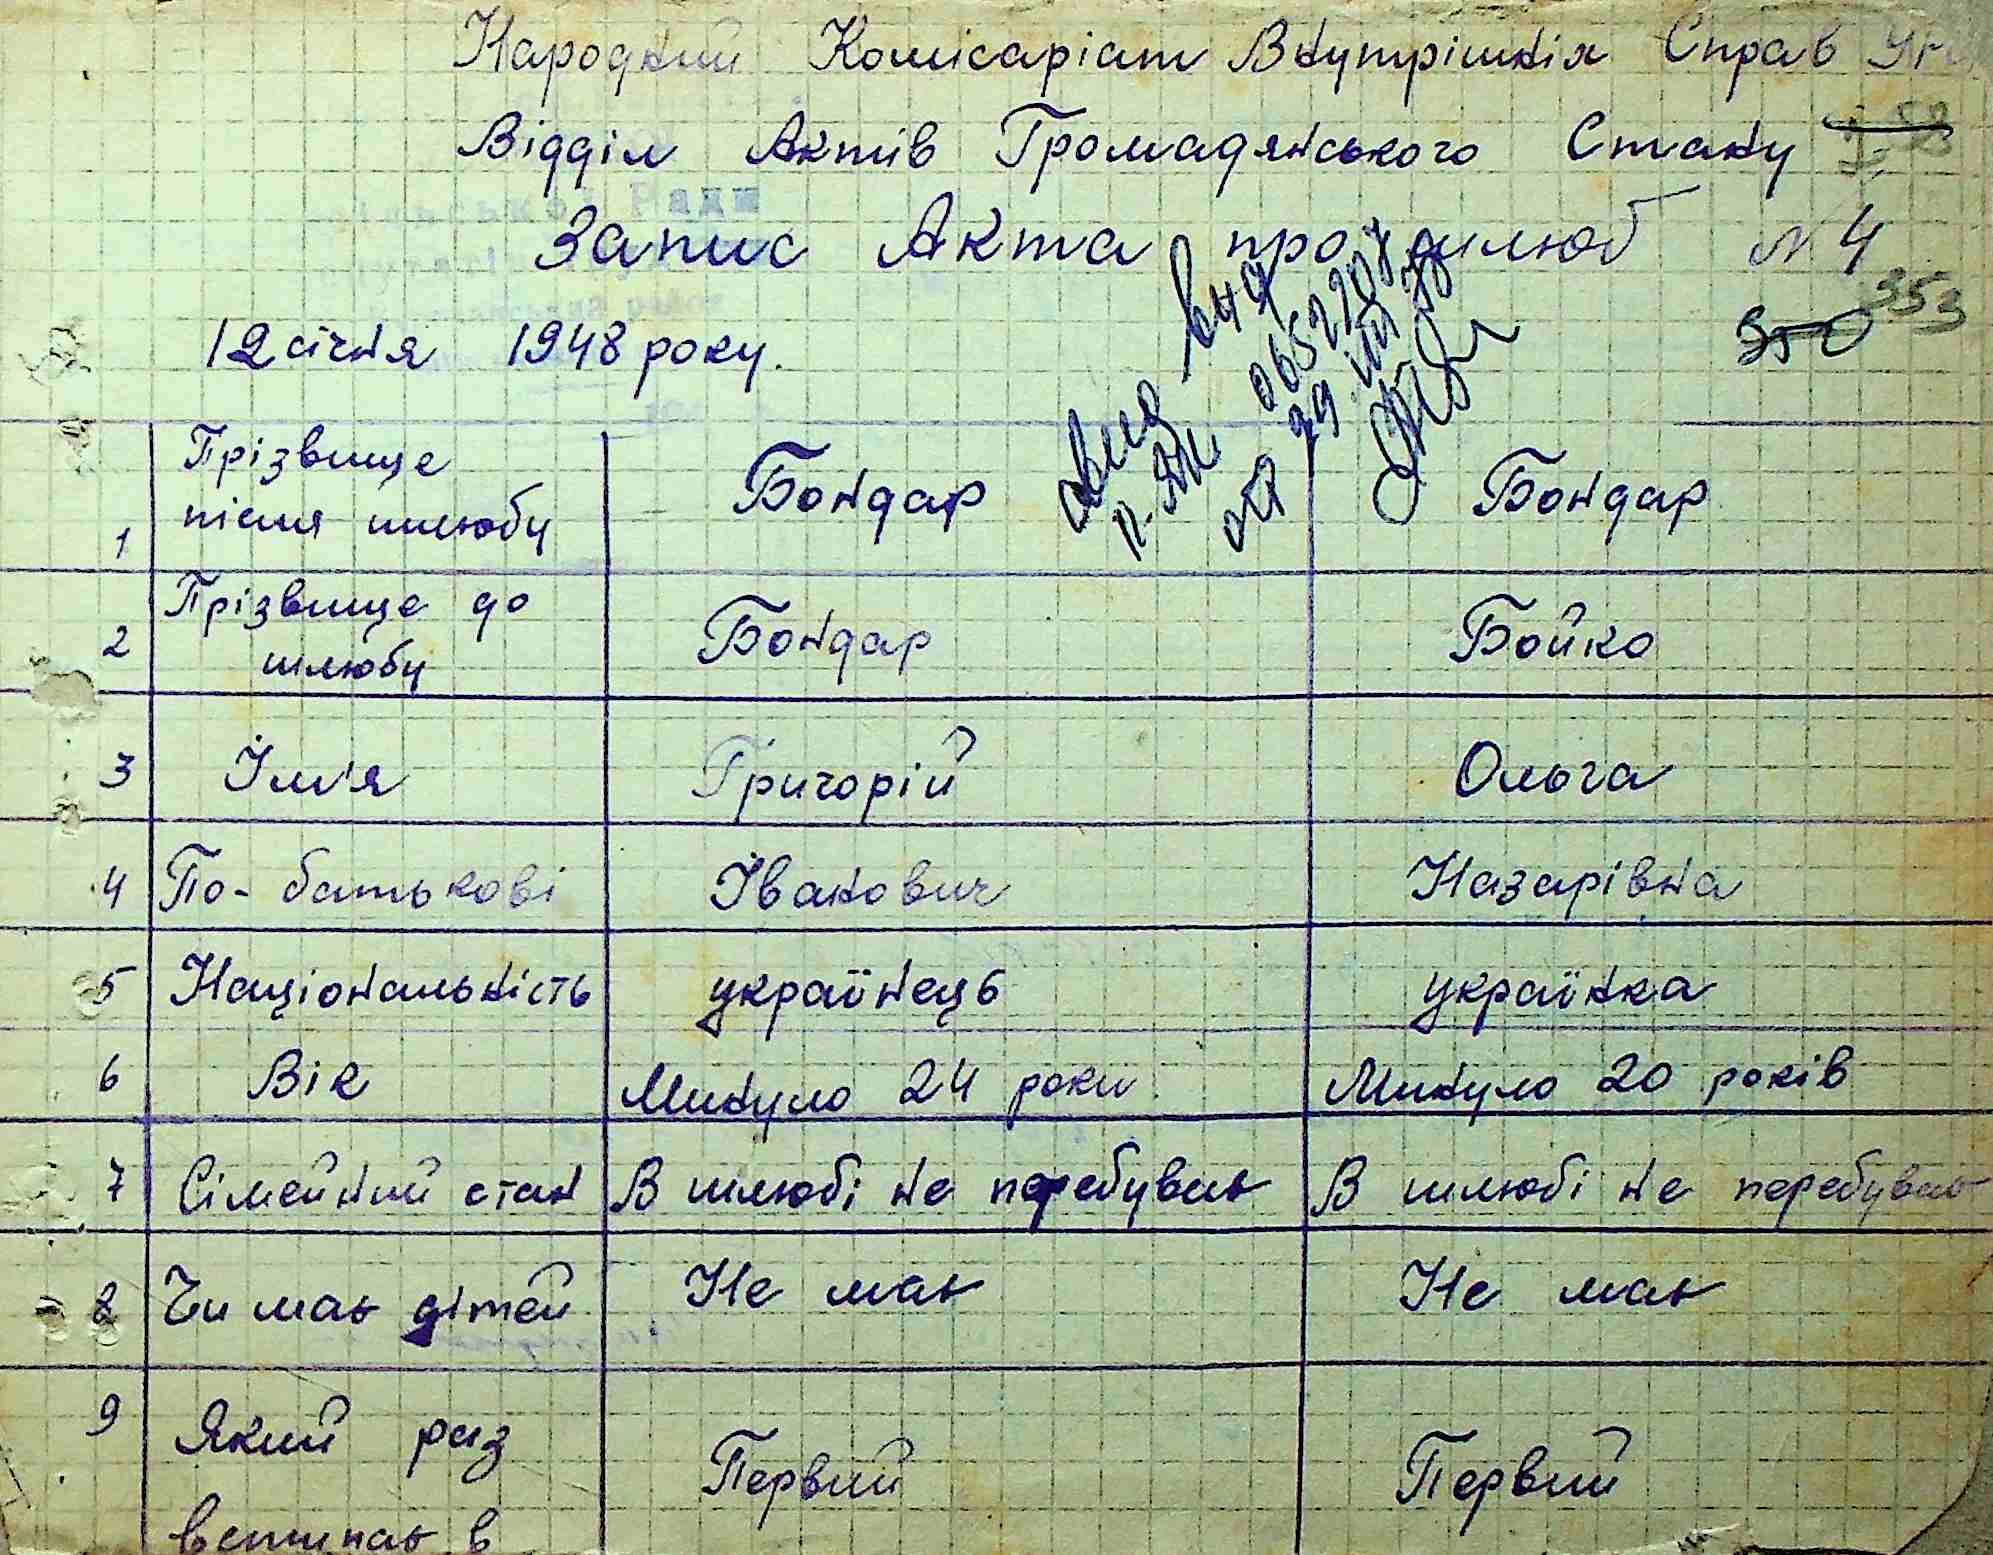 Народний Комісаріат Внутрішніх Справ
Відділ Актів Громадянського Стану
Запис Акта про шлюб № 4
353
350
12 січня 1948 року.
1 Прізвище після шлюбу Бондар Бондар
2 Прізвище до шлюбу Бондар Бойко
3 Ім'я Григорій Ольга
4 По-батькові Іванович Назарівна
5 Національність українець українка
6 Вік Минуло 24 роки Минуло 20 років
7 Сімейний стан В шлюбі не перебував В шлюбі не перебував
8 Чи має дітей Не має Не має
9 Який раз Первий Первий
вступає в